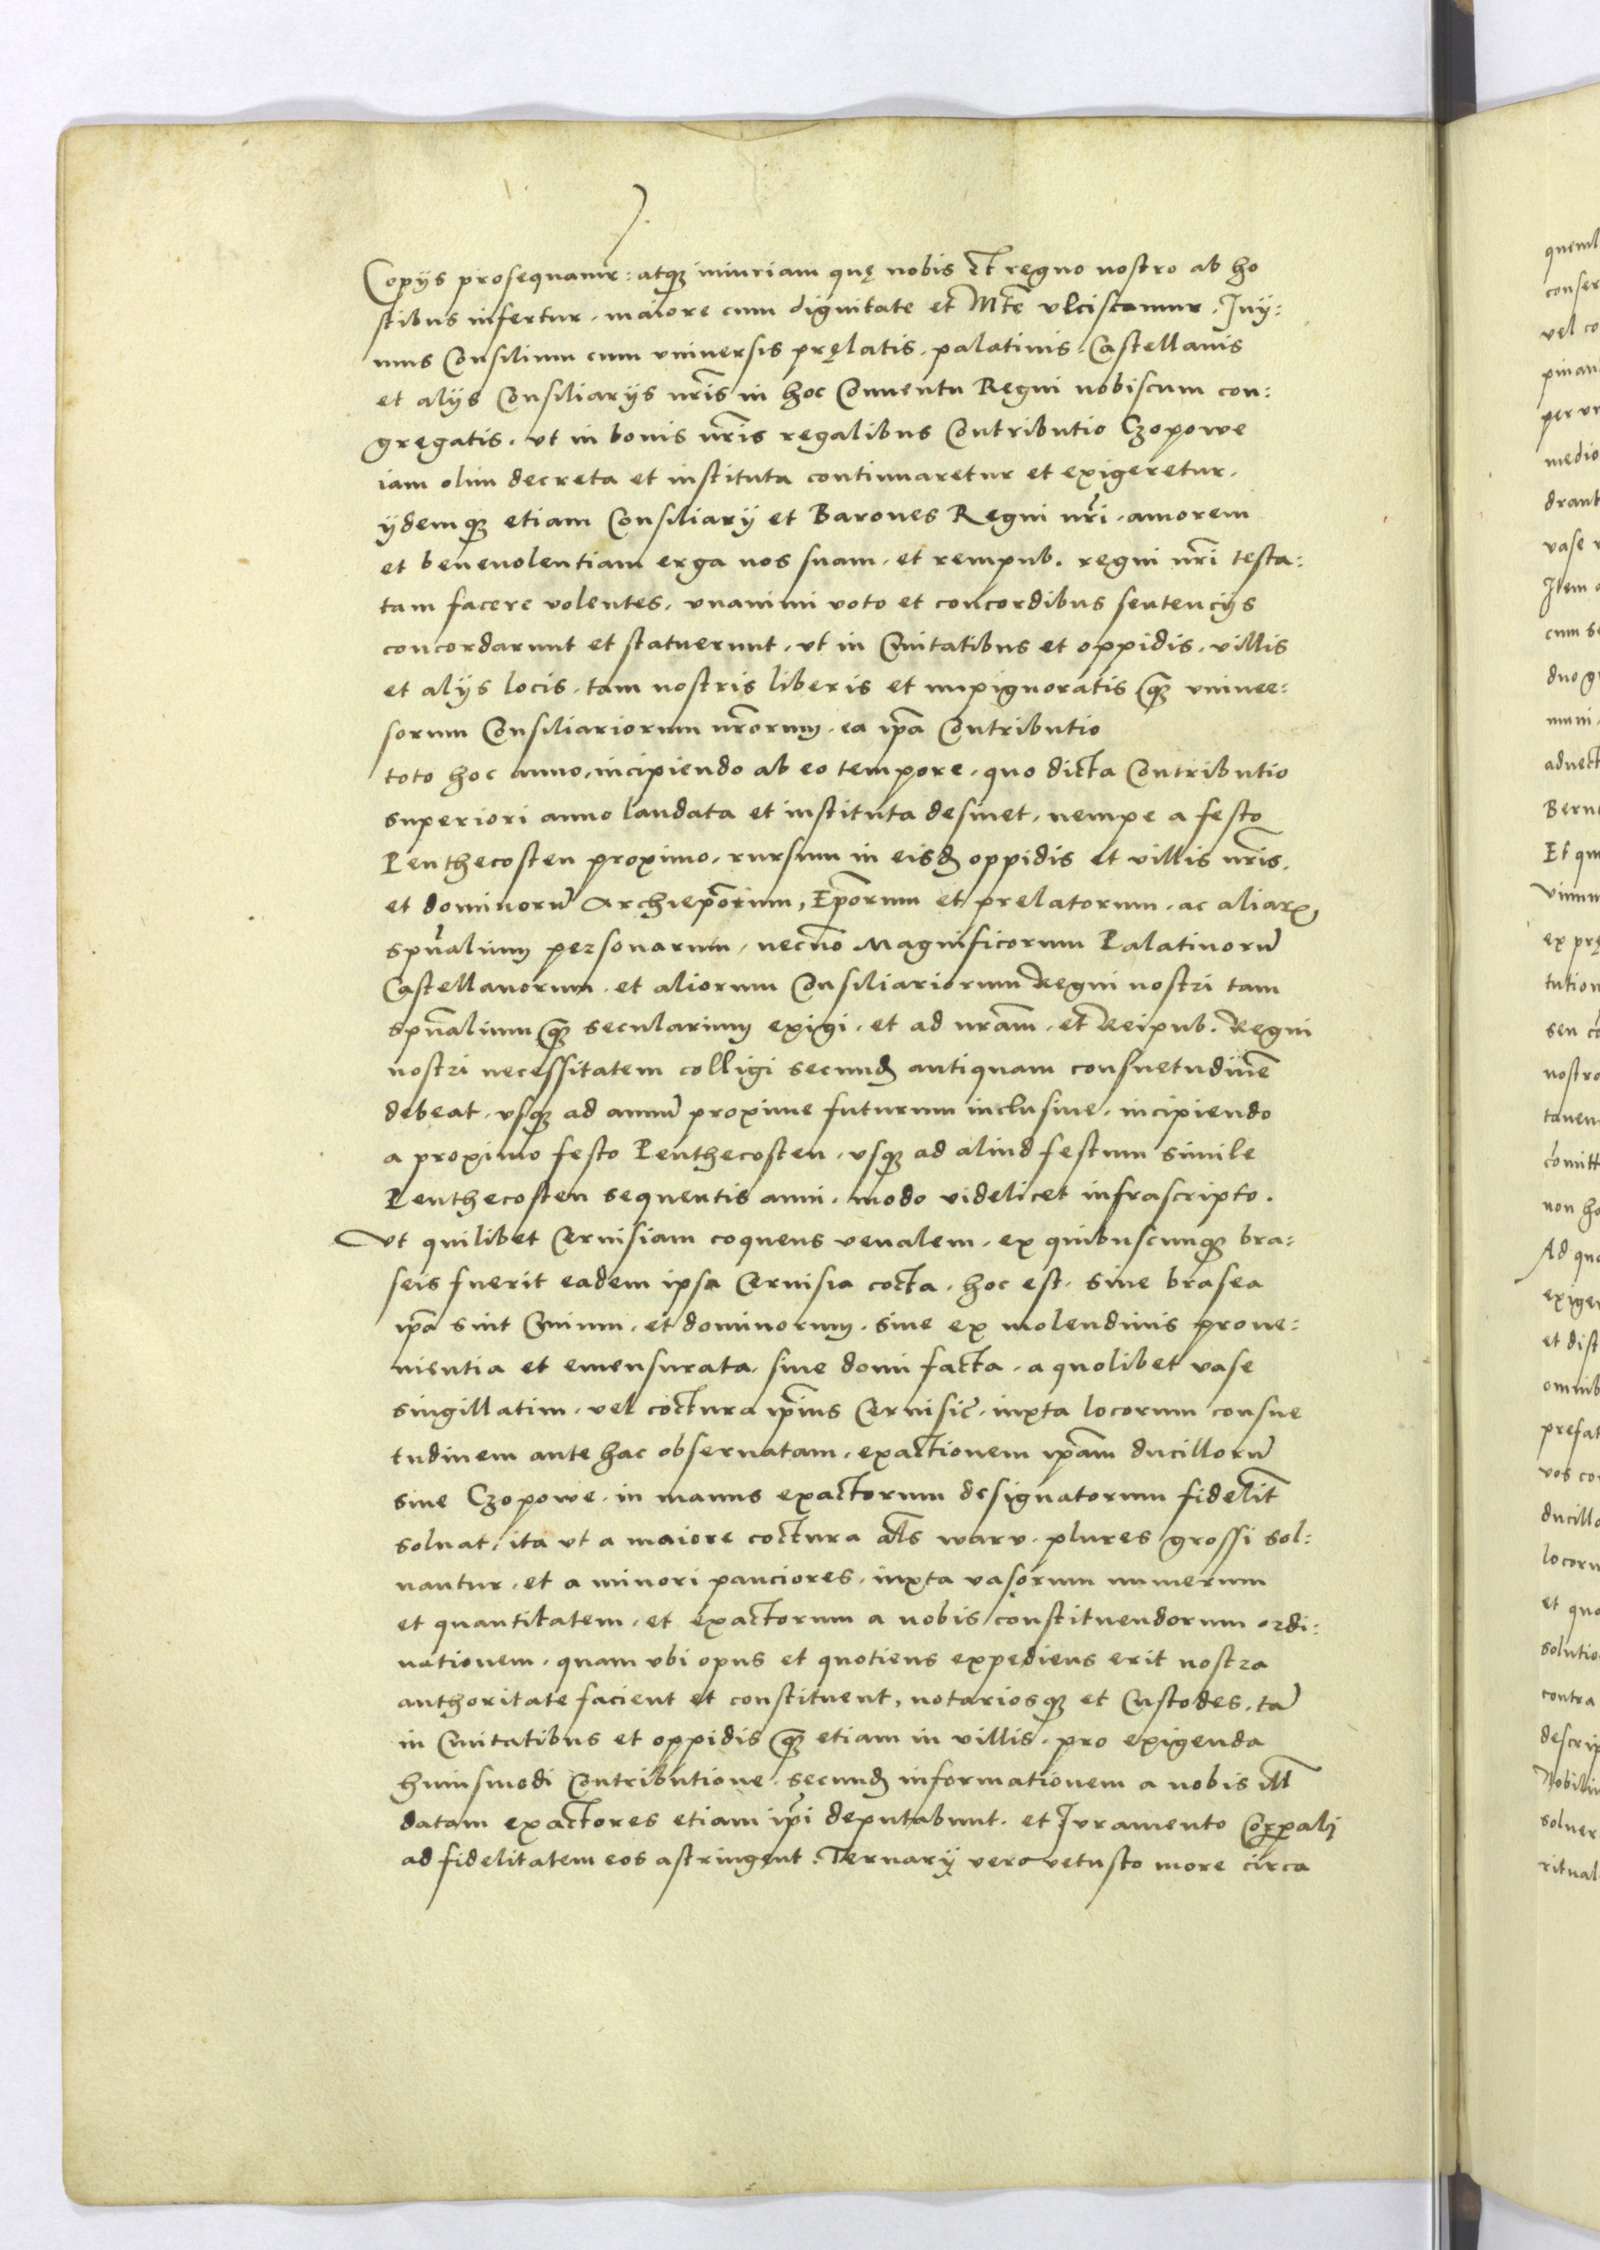 Copijs prosequamur: atq iniuriam quę nobis Et regno nostro ab ho
stibus infertur, maiore cum dignitate et Mte ulciscamur. Inij:
mus Consilium cum vniuersis prelatis, palatinis, Castellanis
et alijs Consiliarijs nris in hoc Conuentu Regni nobiscum con:
gregatis, vt in bonis nris regalibus Contributio Czopowe
iam olim decreta et instituta continuaretur et exigeretur,
ijdemq etiam Consiliarij et Barones Regni nri, amorem
et beneuolentiam erga nos suam, et rempub. regni nri testa:
tam facere volentes, vnanimi voto et concordibus sentencijs
concordarunt et statuerunt, vt in Ciuitatibus et oppidis, villis
et alijs locis, tam nostris liberis et inpignoratis q vniuer:
sorum Consiliariorum nrorum, ea ipa Contributio
toto hoc anno, incipiendo ab eo tempore, quo dicta Contributio
superiori anno laudata et instituta desinet, nempe a festo
Penthecosten proximo, rursum in eisd oppidis et villis nris,
et dominoru Archieporum, Eporum et prelatorum, ac aliar
spualium personarum, necno Magnificorum Palatinoru
Castellanorum, et aliorum Consiliariorum Regni nostri tam
spualium q secularium exigi, et ad nram, et Reipub. Regni
nostri necessitatem colligi secund antiquam consuetudine
debeat, vsq ad annu proxime futurum inclusiue, incipiendo
a proximo festo Penthecosten, vsq ad aliud festum simile
Penthecosten sequentis anni, modo videlicet infrascripto.
Vt quilibet Ceruisiam coquens venalem, ex quibuscunq bra:
seis fuerit eadem ipsa Ceruisia cocta, hoc est, siue brasea
ipa sint Ciuium, et dominorum, siue ex molendinis proue:
nientia et emensurata, siue domi facta, a quolibet vase
singillatim, vel coctura ipius Ceruisie, iuxta locorum consue
tudinem ante hac obseruatam, exactionem ipam ducilloru
siue Czopowe, in manus exactorum designatorum fidelit
soluat, ita vt a maiore coctura als warv, plures grossi sol:
uantur, et a minori pauciores, iuxta vasorum numerum
et quantitatem, et exactorum a nobis constituendorum ordi:
nationem, quam vbi opus et quotiens expediens erit nostra
authoritate facient et constituent, notariosq et Custodes, ta
in Ciuitatibus et oppidis q etiam in villis, pro exigenda
huiusmodi Contributione, secund informationem a nobis ill
datam exactores etiam ipi deputabunt, et Iuramento Corpali
ad fidelitatem eos astringent. Ternarij vero vetusto more circa